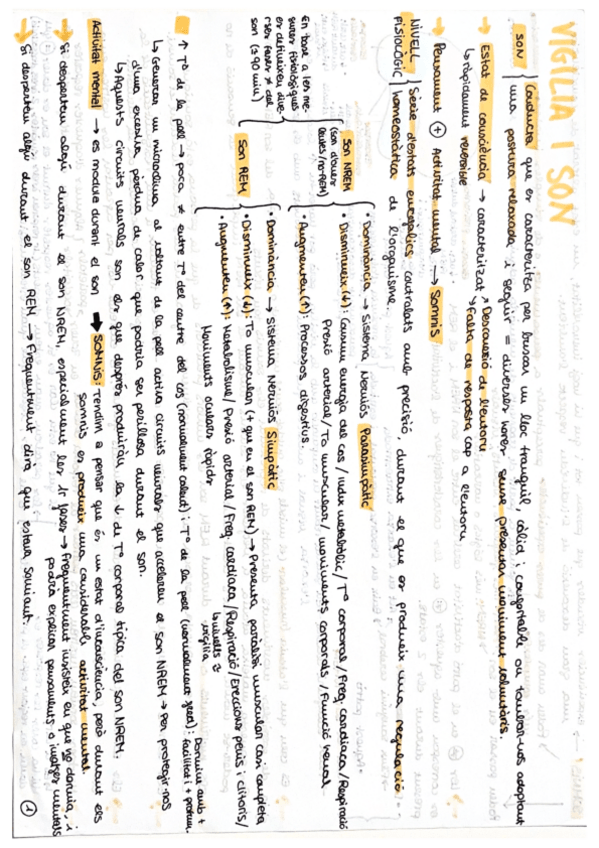 VIGÍLIA I SON
SON Conducta que es caracteritza per buscar un lloc tranquil, càlid i confortable on tombar-nos adoptant
una postura relaxada i seguir = diverses hores sense presentar moviment voluntaris.
→ Estat de consciència → caracteritzat ↗ Desconnexió de l'entorn
↘ Falta de resposta cap a l'entorn
↳ ràpidament reversible
→ Pensament (+) Activitat mental → Somnis
NIVELL FISIOLÒGIC Sèrie d'estats energètics controlats amb precisió, durant el que es produeix una regulació
homeostàtica de l'organisme.
En base a les mesures fisiològiques es defineixen diverses fases ≠ del son (±90 min)
Son NREM (son d'ones lentes/no-REM)
• Dominància → Sistema Nerviós Parasimpàtic
• Disminueix (↓): Consum energia del cos / Índex metabòlic / Tº corporal / Freq. cardíaca / Respiració
Pressió arterial / To muscular / moviments corporals / Funció renal
• Augmenten (↑): Processos digestius.
Son REM
• Dominància → Sistema Nerviós Simpàtic
• Disminueix (↓): To muscular (+ que en el son NREM) → Presenta paràlisi muscular casi completa
• Augmenten (↑): Metabolisme / Pressió arterial / Freq. cardíaca / Respiració / Ereccions penis i clítoris /
Moviments oculars ràpids
↳ nivells vigília
• ↑ Tº de la pell → poca ≠ entre Tº del centre del cos (normalment calent) i Tº de la pell (normalment freda): facilitat i + profund.
↳ Generar un microclima al voltant de la pell activa circuits neurals que acceleren el son NREM → Per protegir-nos
d'una excessiva pèrdua de calor que podria ser perillosa durant el son.
↳ Aquests circuits neurals són els que després produiran la ↓ de Tº corporal típica del son NREM.
Activitat mental → es modula durant el son ➡ SOMNIS: Tendim a pensar que és un estat d'inconsciència, però durant els
somnis es produeix una considerable activitat mental.
→ Si despertem algú durant el son NREM, especialment les 1r fases → Freqüentment insisteix en que no dormia, i
podrà explicar pensaments o imatges mentals
→ Si despertem algú durant el son REM → Freqüentment dirà que estava somiant.
1